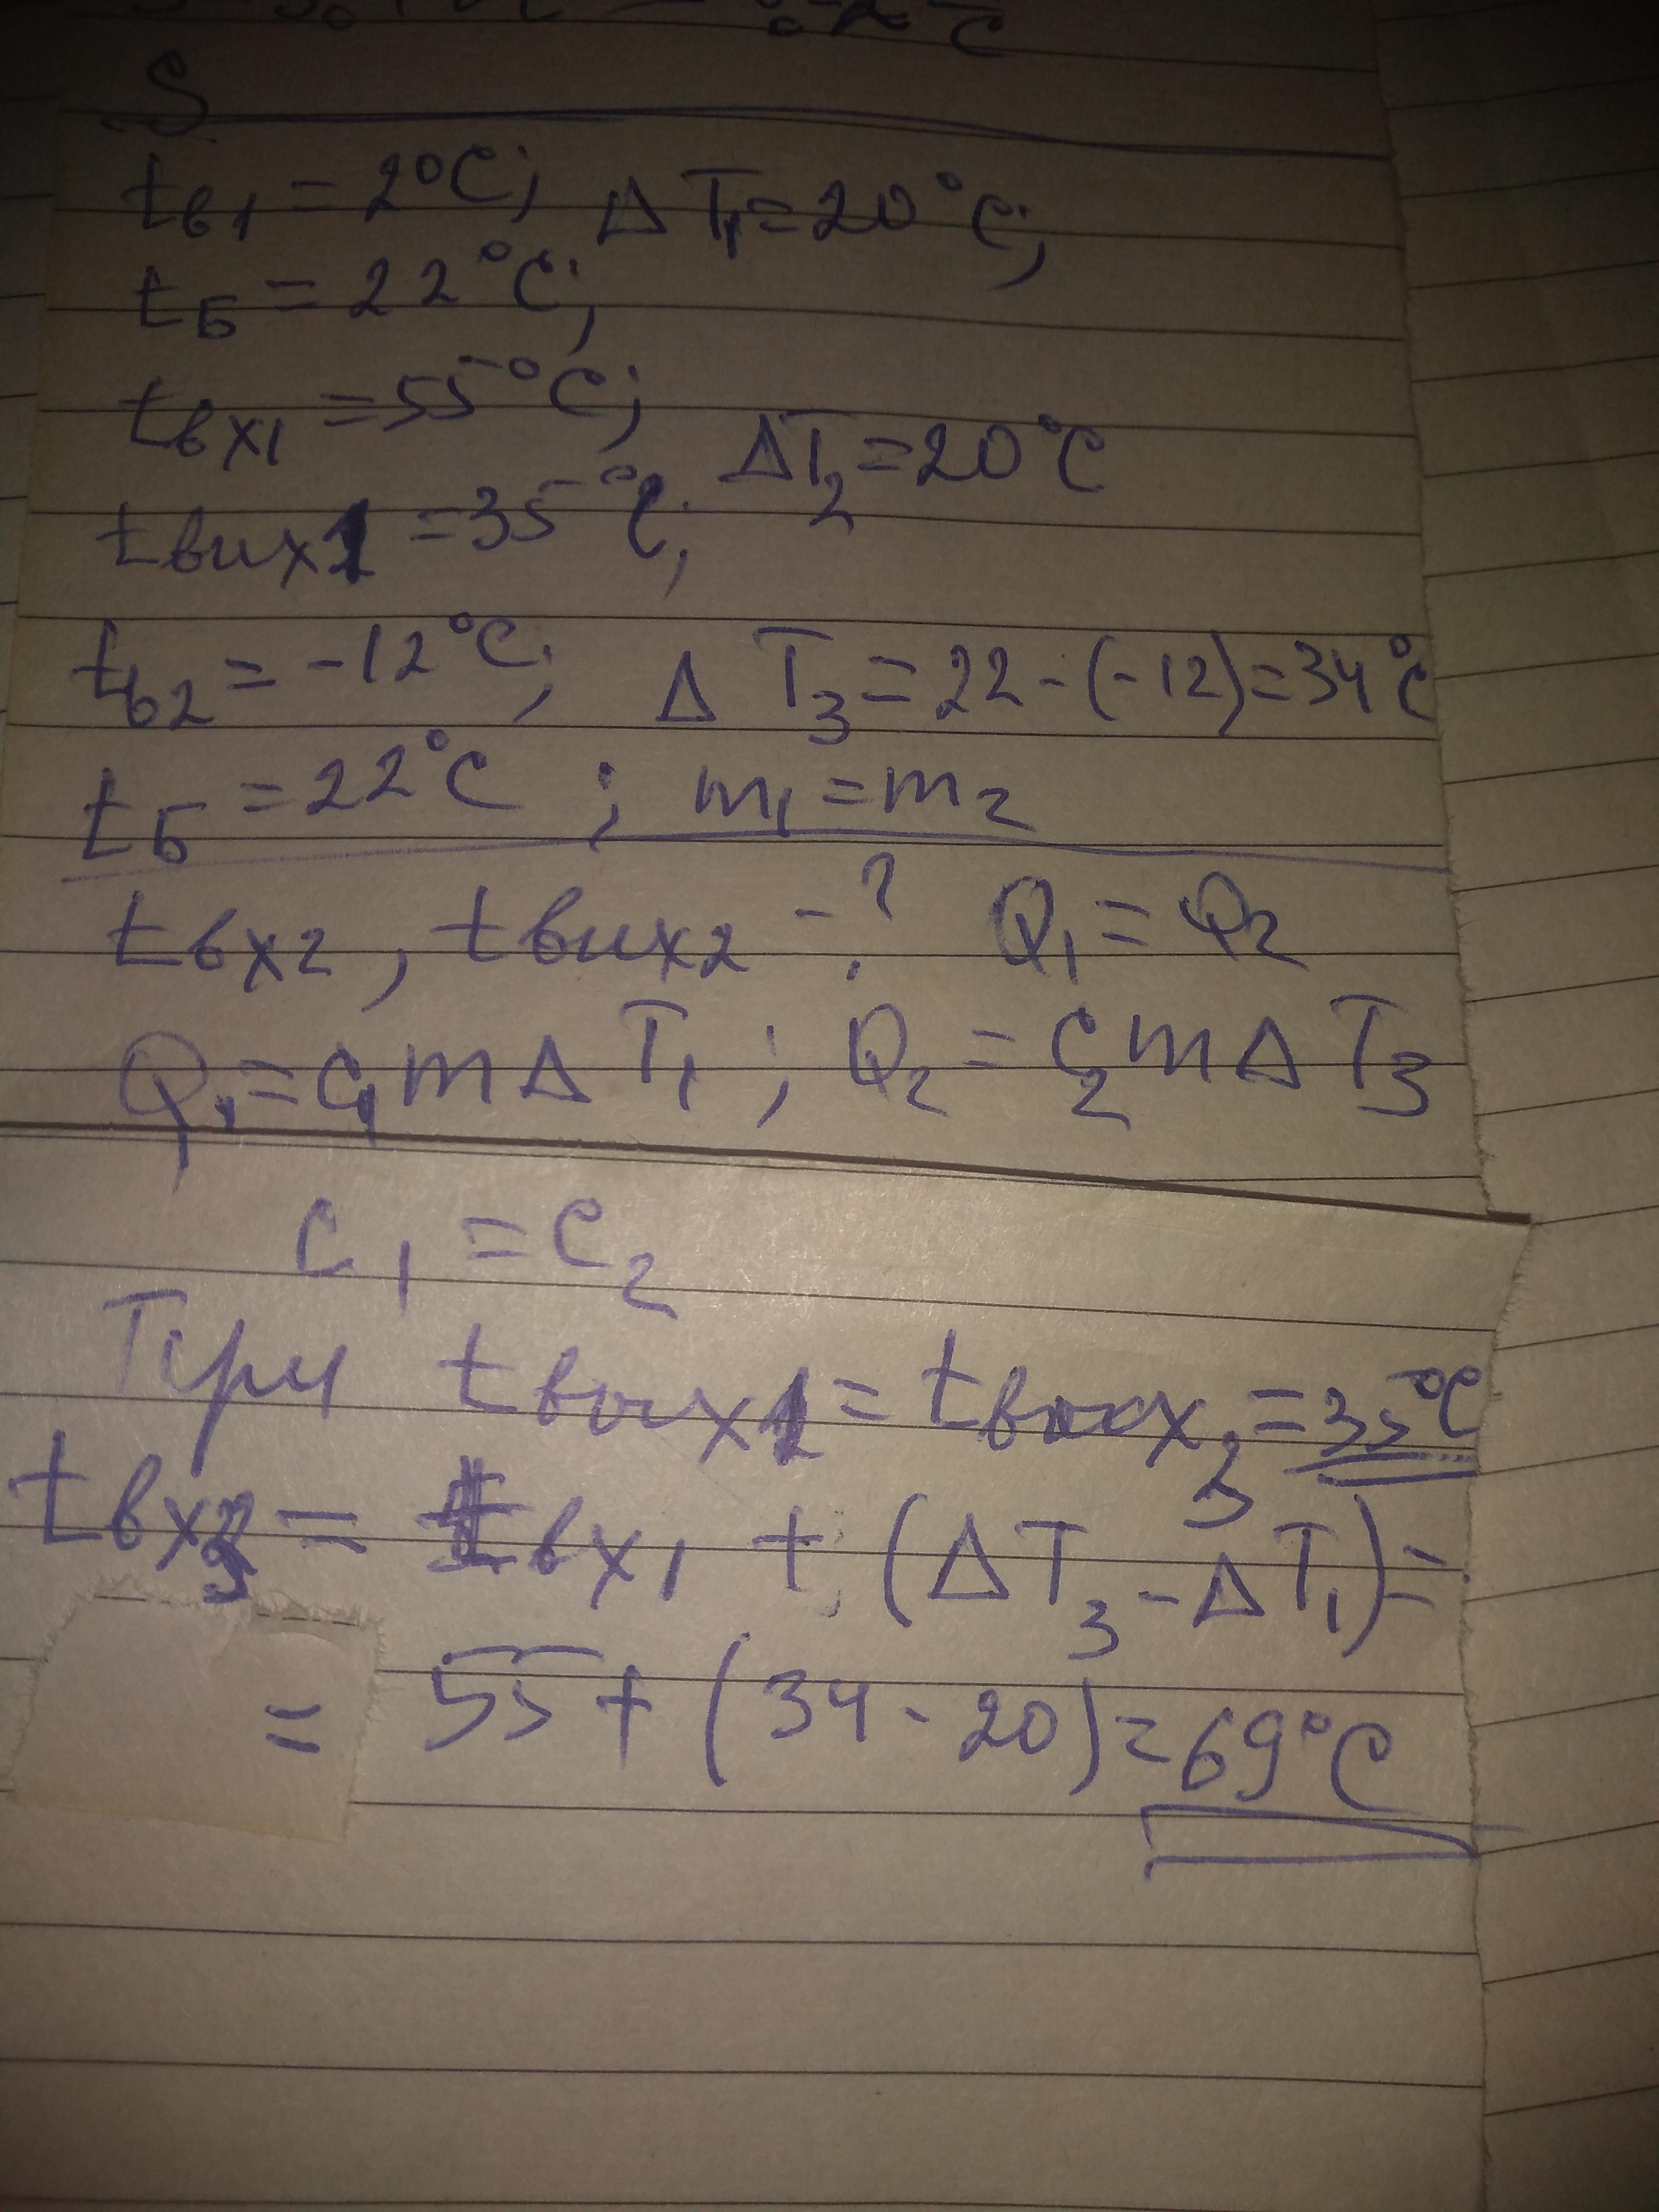 S
tв1 = 2°C; ΔT1 = 20°C;
tБ = 22°C;
tвх1 = 55°C;
ΔT2 = 20°C
tвих1 = 35°C;
tв2 = -12°C; ΔT3 = 22-(-12)=34°C
tБ = 22°C ; m1 = m2
tвх2, tвих2 - ? Q1 = Q2
Q1 = C1mΔT1; Q2 = C2mΔT3
C1 = C2
При tвих1 = tвих3 = 35°C
tвх3 = tвх1 + (ΔT3 - ΔT1) =
= 55 + (34 - 20) = 69°C